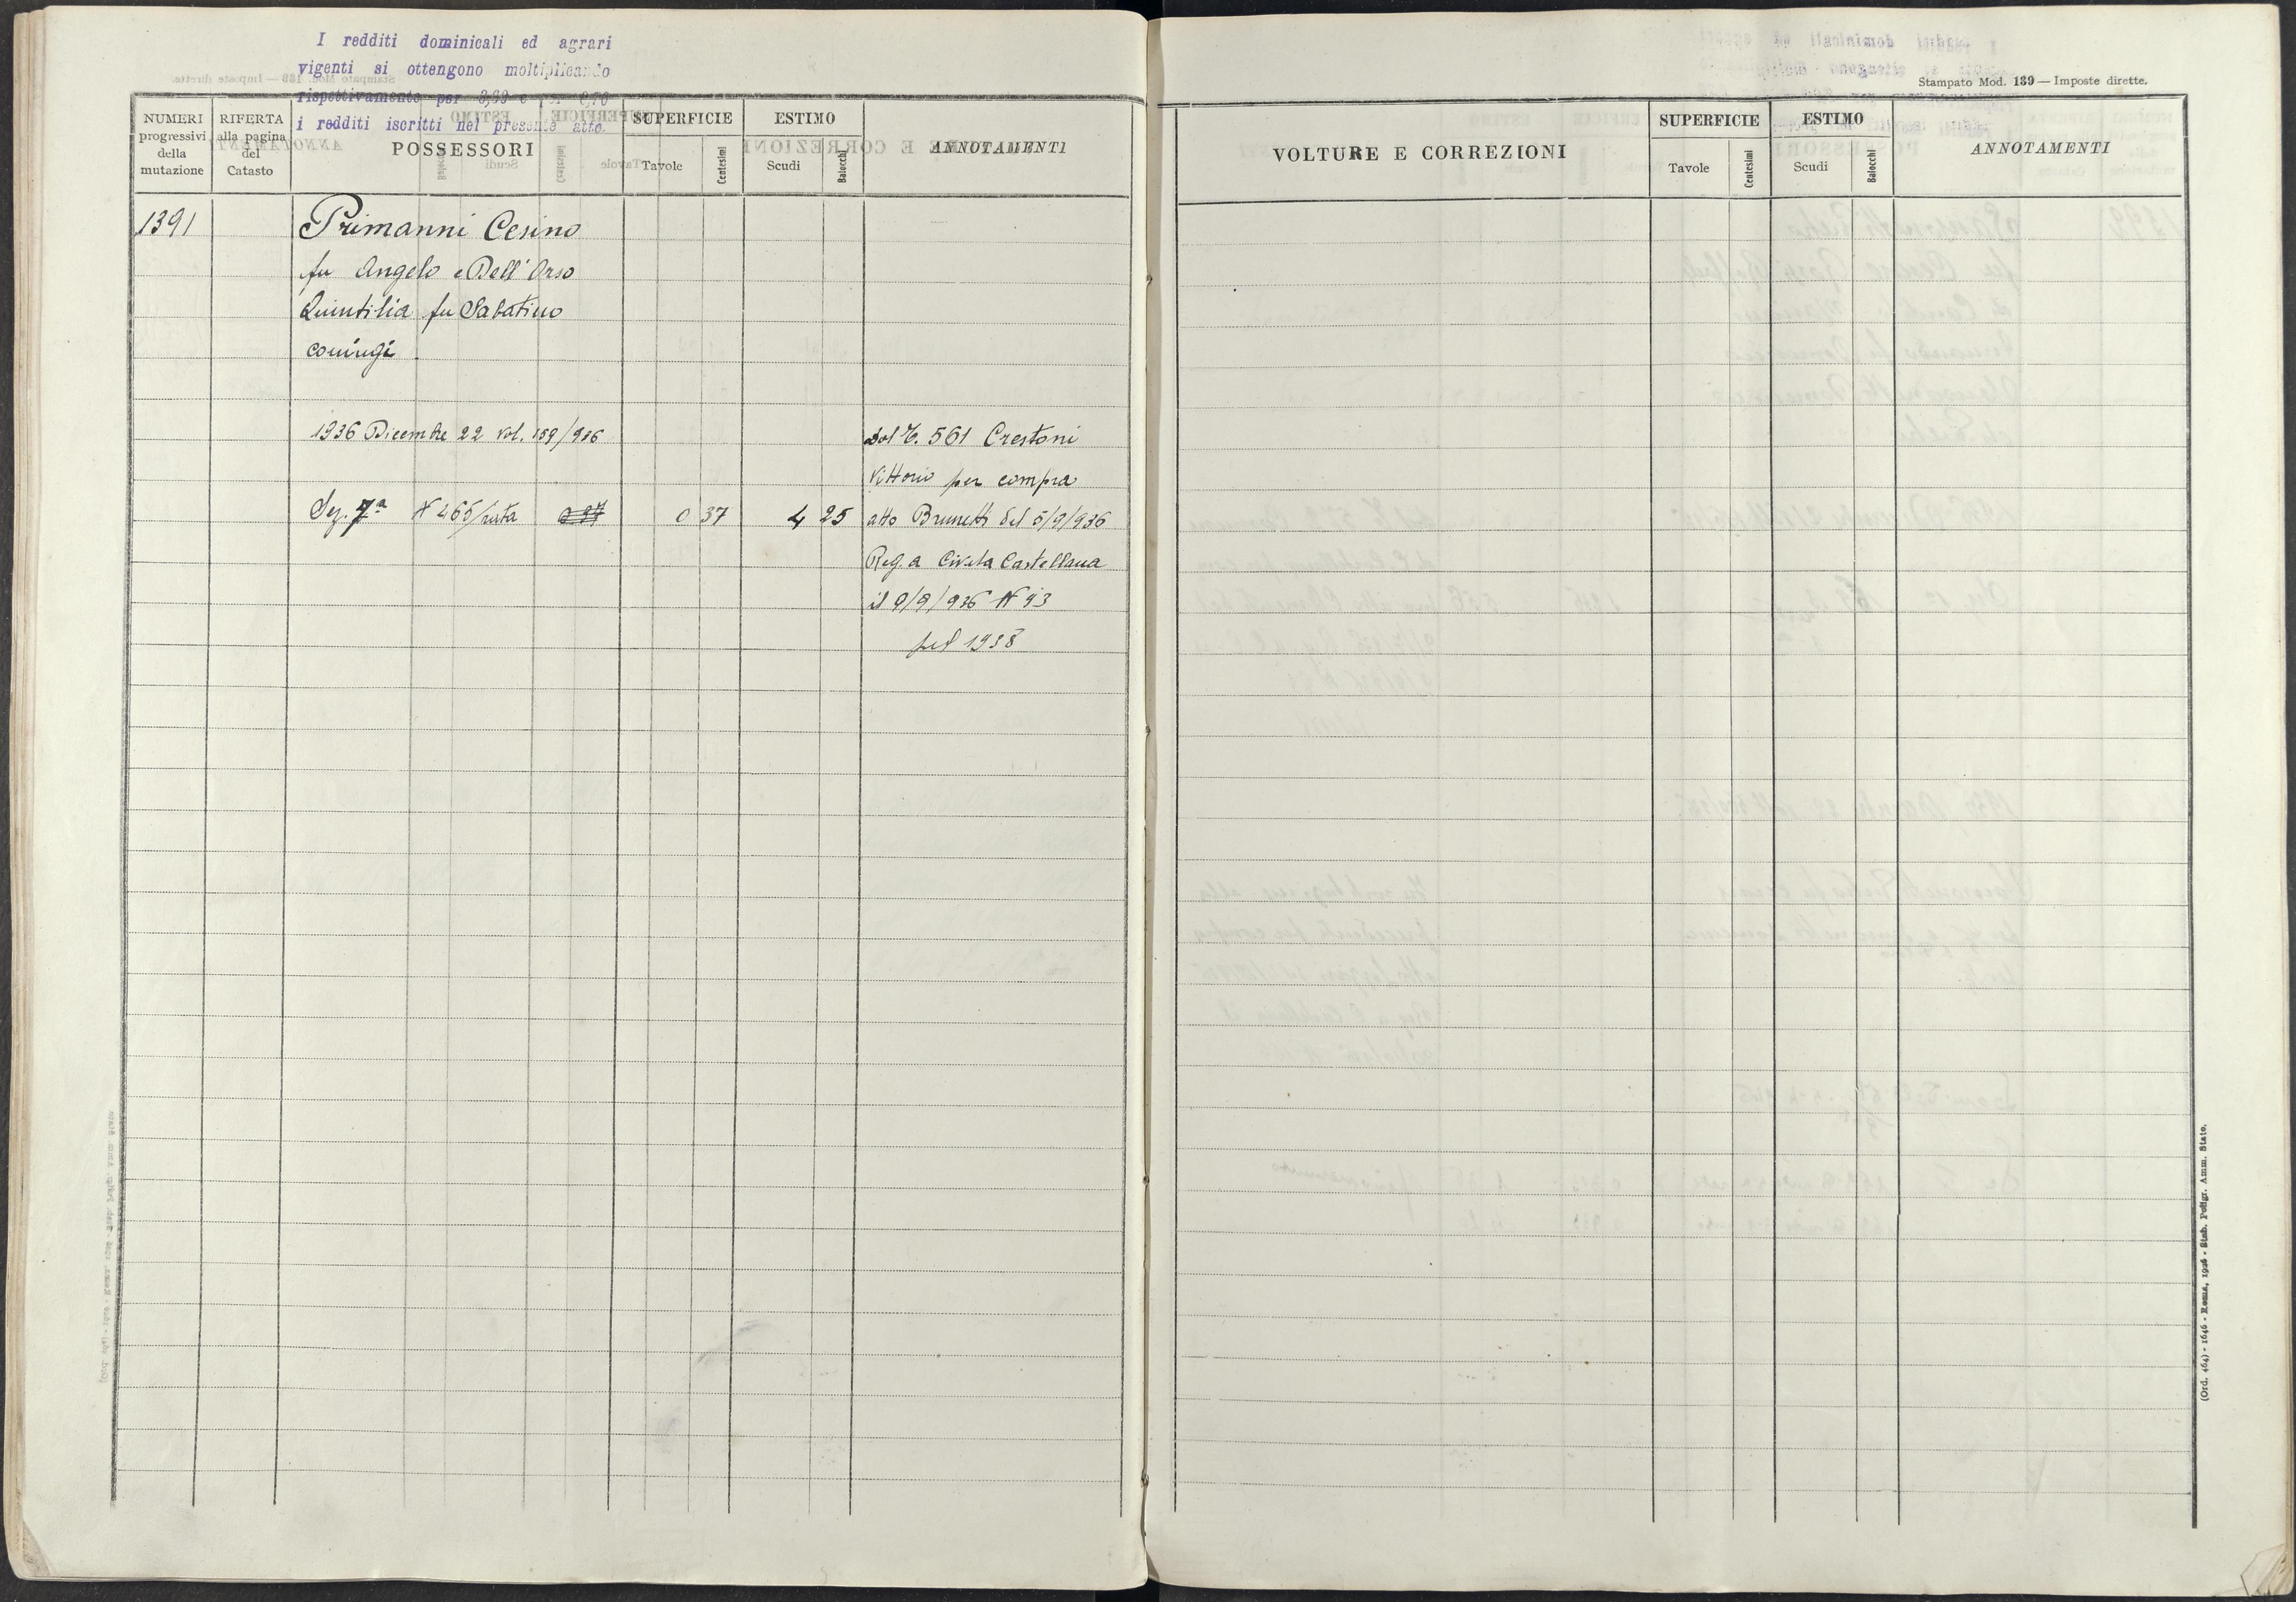 I redditi dominicali ed agrari
vigenti si ottengono moltiplicando
rispettivamente per 3,39 e per
i redditi iscritti nel presente atto.
NUMERI progressivi della mutazione
RIFERTA alla pagina del Catasto
POSSESSORI
SUPERFICIE
Tavole
Centesimi
ESTIMO
Scudi
Baiocchi
ANNOTAMENTI
1391
Primanni Cesino
fu Angelo e Dell' Orso
Quintilia fu Sabatino
coniugi
1936 Dicembre 22 vol. 159/936
dal C. 561 Crestoni
Vittorio per compra
Sez. 7ª N 465/rata 0 37 0 37 4 25 atto Brunetti del 5/9/936
Reg. a Civita Castellana
il 9/9/936 N 93
pel 1938
Stampato Mod. 139 — Imposte dirette.
VOLTURE E CORREZIONI
SUPERFICIE
Tavole
Centesimi
ESTIMO
Scudi
Baiocchi
ANNOTAMENTI
(Ord. 464) - 1646 - Roma, 1926 - Stab. Poligr. Amm. Stato.